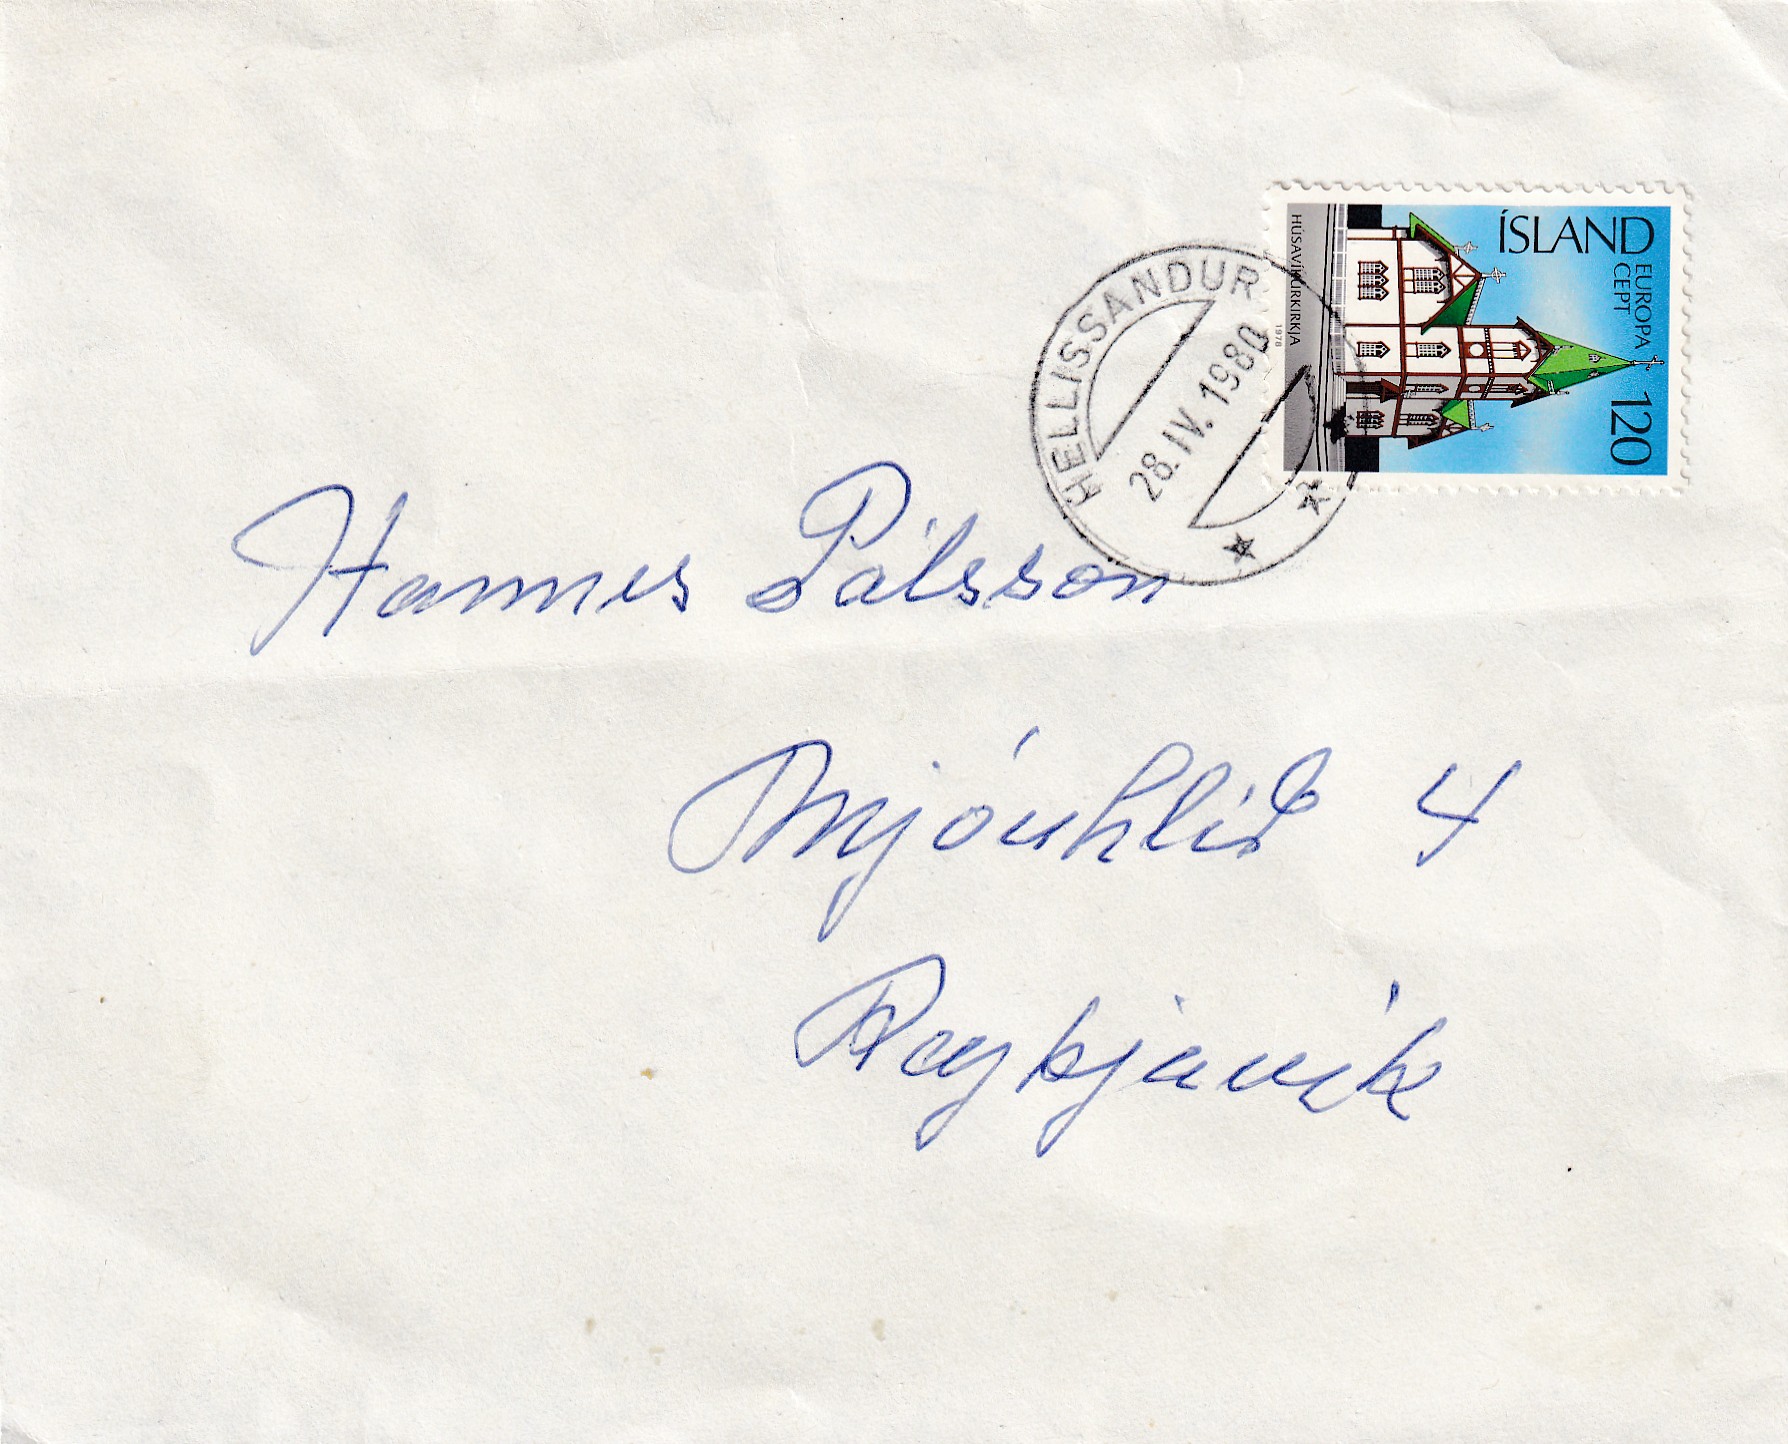 ÍSLAND
EUROPA
CEPT
120
HÚSAVÍKURKIRKJA
1978
HELLISSANDUR
28.IV.1980
Hannes Pálsson
Mjóuhlíð 4
Reykjavík